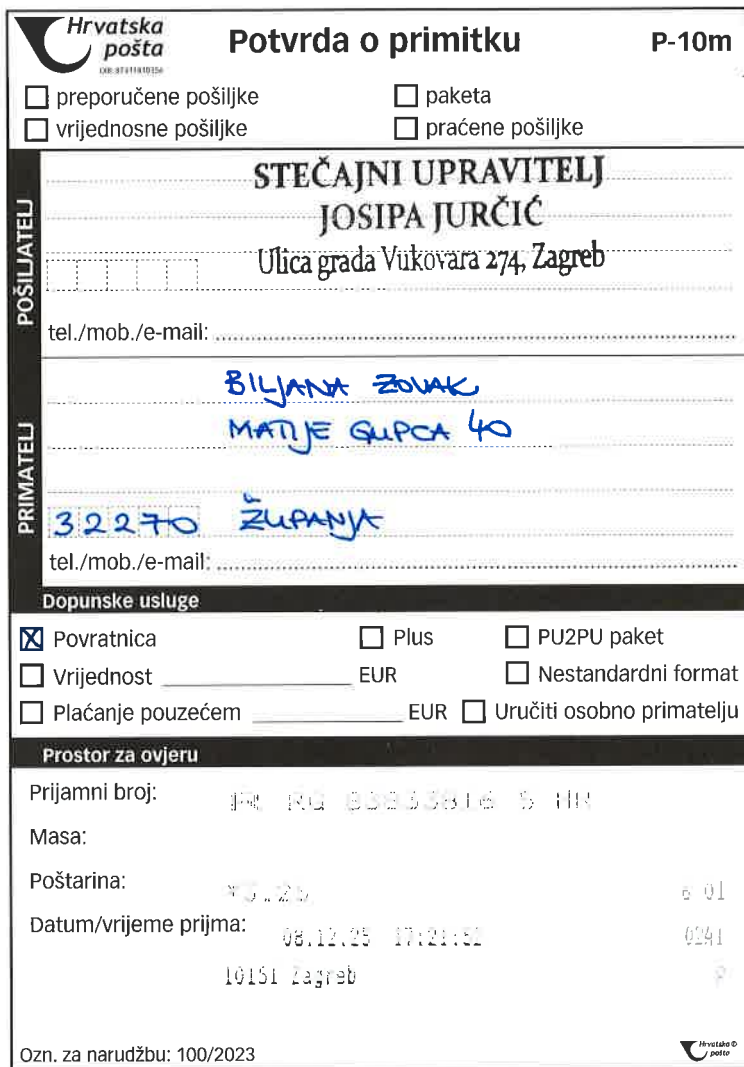 Hrvatska pošta
Potvrda o primitku
P-10m
preporučene pošiljke
paketa
vrijednosne pošiljke
praćene pošiljke
POŠILJATELJ
STEČAJNI UPRAVITELJ
JOSIPA JURČIĆ
Ulica grada Vukovara 274, Zagreb
tel./mob./e-mail:
PRIMATELJ
BILJANA ZOVAK
MATIJE GUPCA 40
32270 ŽUPANJA
tel./mob./e-mail:
Dopunske usluge
Povratnica
Plus
PU2PU paket
Vrijednost EUR
Nestandardni format
Plaćanje pouzećem EUR
Uručiti osobno primatelju
Prostor za ovjeru
Prijamni broj: HR
Masa:
Poštarina:
Datum/vrijeme prijma: 08.12.25 17:21:52 0241
10151 Zagreb
Ozn. za narudžbu: 100/2023
Hrvatska pošta